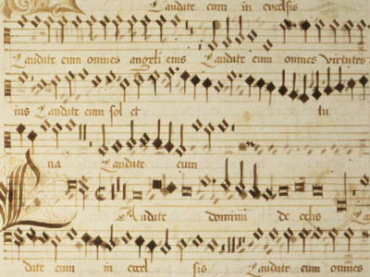 Laudate eum in excelsis
Laudate eum omnes angeli eius Laudate eum omnes virtutes
ius Laudate eum sol et lu
na Laudate eum
Laudate dominum de celis
date eum in excel sis Laudate eum omnes